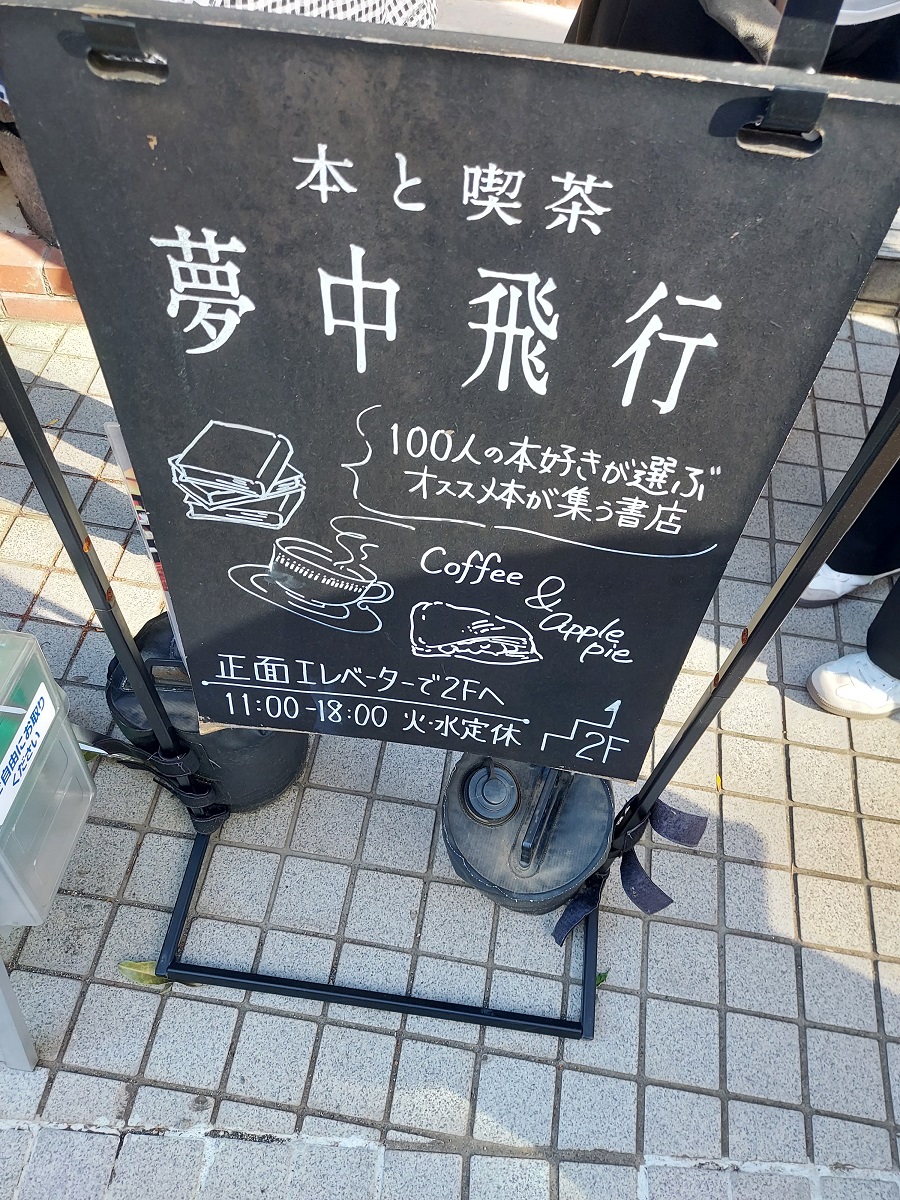 本と喫茶
夢中飛行
100人の本好きが選ぶ
オススメ本が集う書店
Coffee &
apple
pie
正面エレベーターで2Fへ
11:00-18:00 火・水定休
2F
自由にお取り
ください